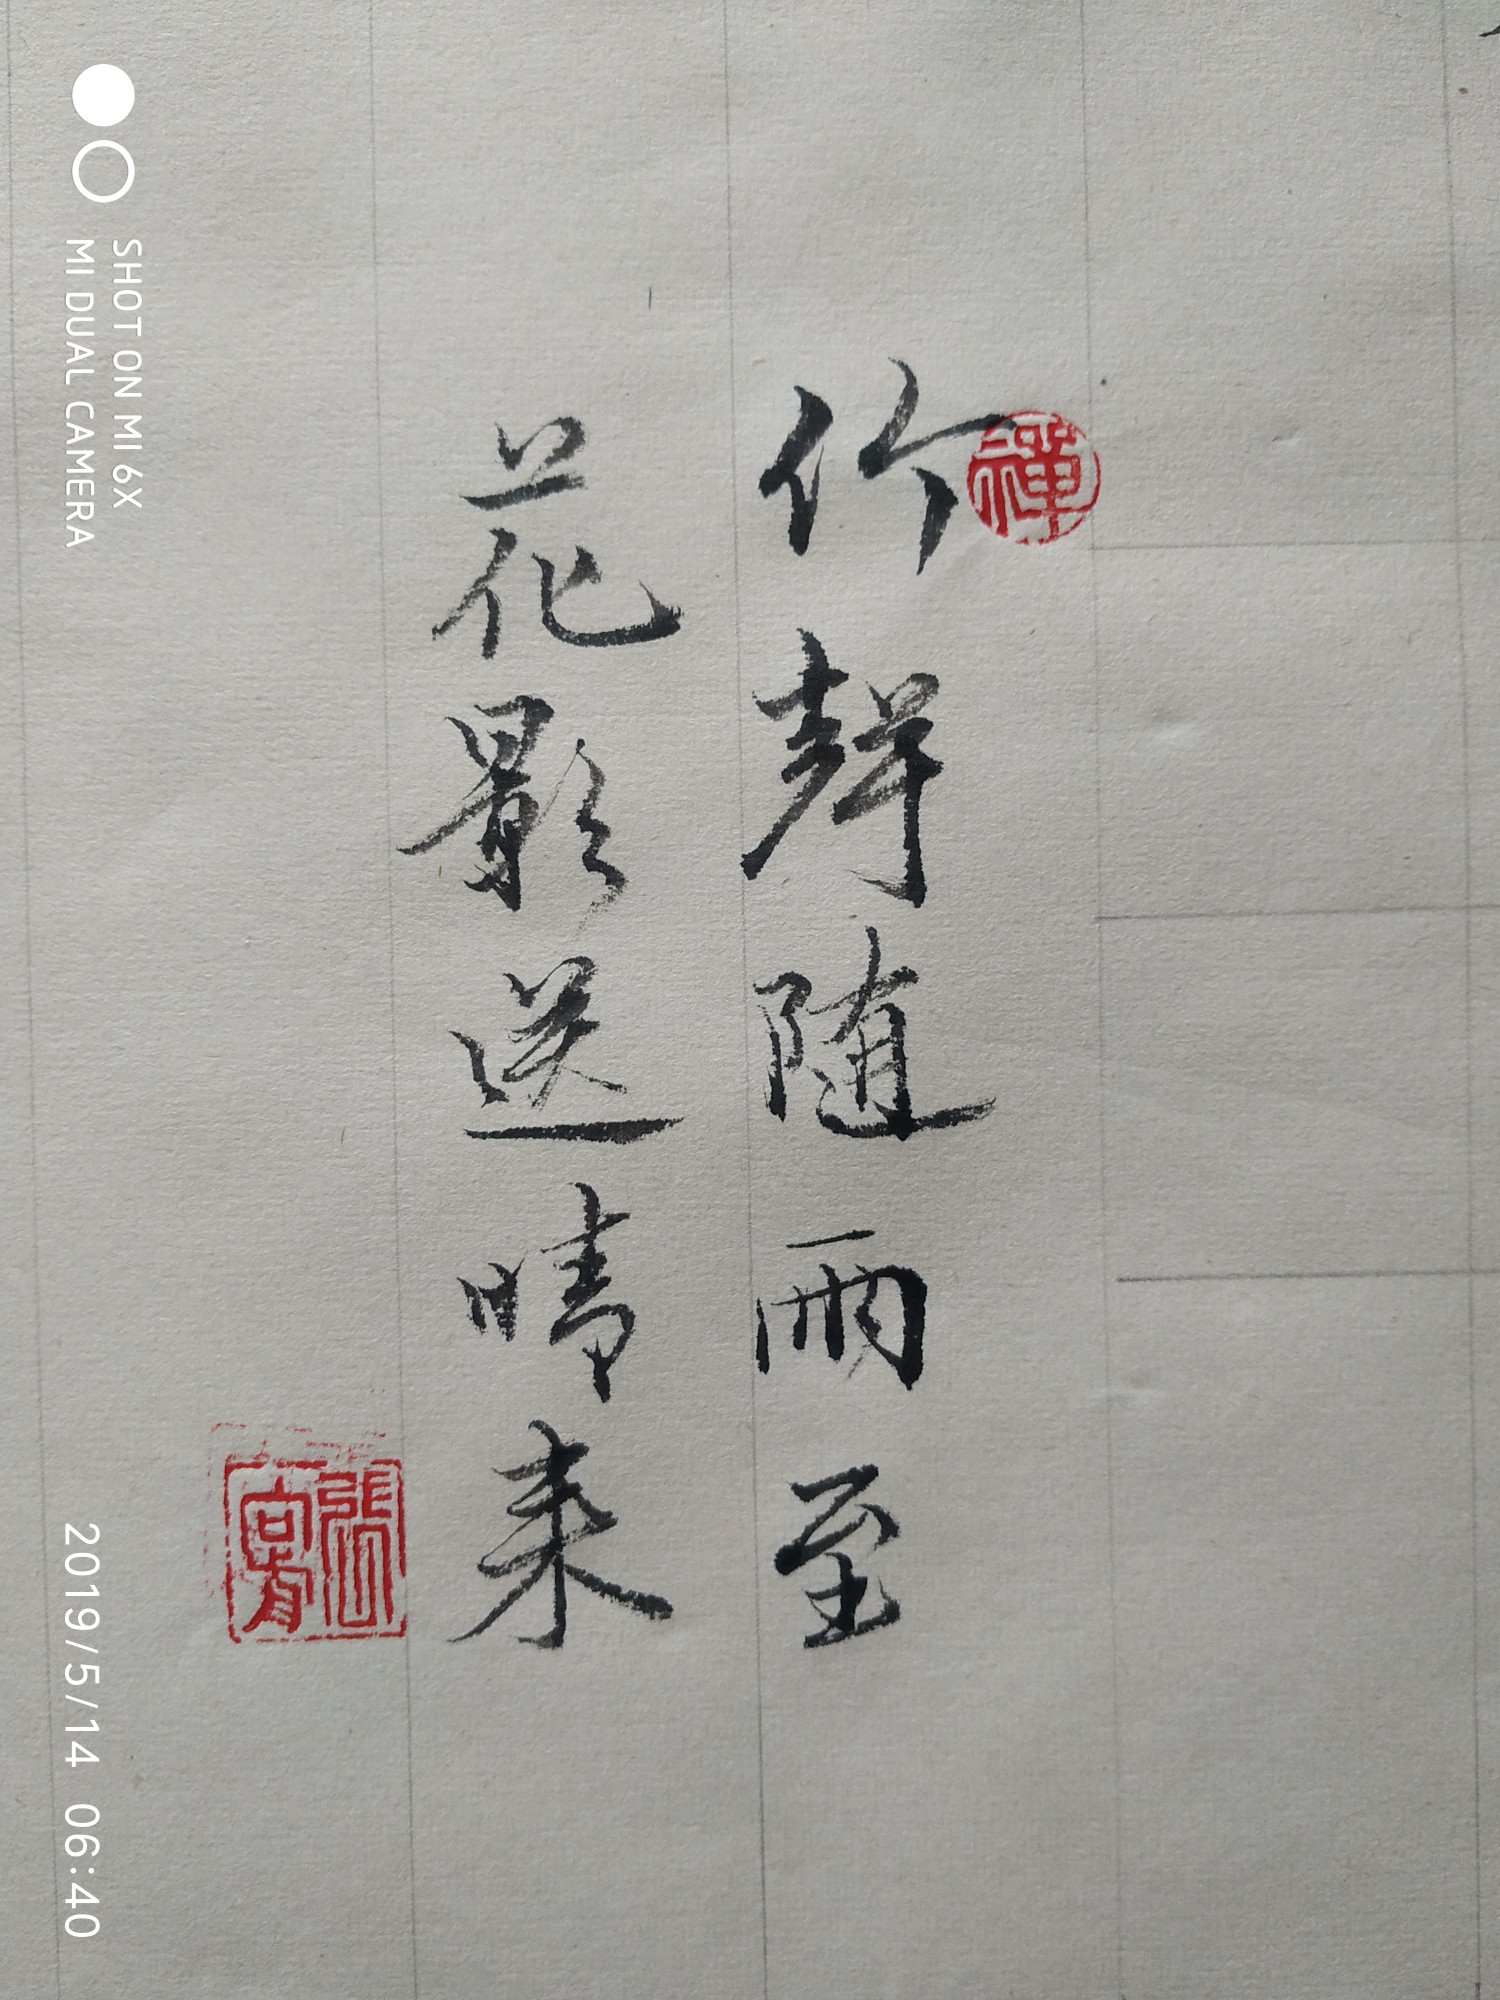 竹聲随雨至
花影送晴来
禪
SHOT ON MI 6X
MI DUAL CAMERA
2019/5/14 06:40